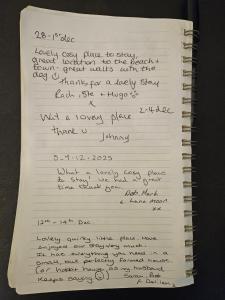 28-1st dec
Lovely cosy place to stay,
great location to the beach +
town. great walks with the
dog
thanks for a lovely stay
Rach, Ste + Hugo
x
2-4 dec
What a lovely place
thank u
Johnny
5-9.12.2025
What a lovely cosy place
to stay! we had a great
time thank you.
Deb, Mark
xx
12th - 14th Dec
Lovely quirky little place. Have
enjoyed our stay very much.
It has everything you need in a
small, but perfectly formed house.
(or hobbit house as my husband
keeps saying)